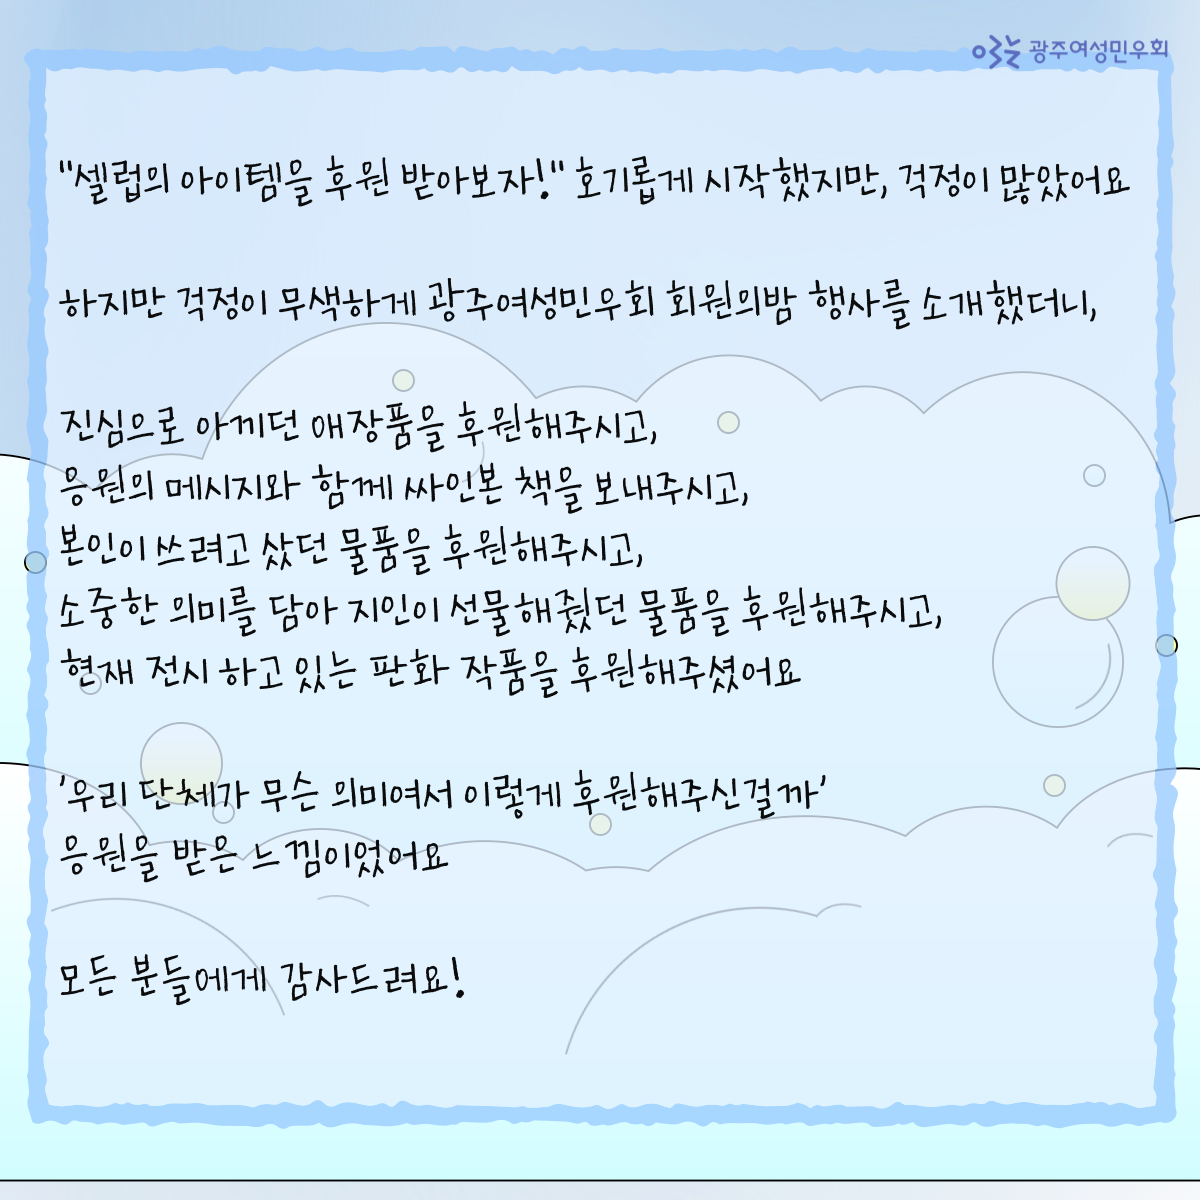 광주여성민우회
"셀럽의 아이템을 후원 받아보자!" 호기롭게 시작했지만, 걱정이 많았어요
하지만 걱정이 무색하게 광주여성민우회 회원의밤 행사를 소개했더니,
진심으로 아끼던 애장품을 후원해주시고,
응원의 메시지와 함께 싸인본 책을 보내주시고,
본인이 쓰려고 샀던 물품을 후원해주시고,
소중한 의미를 담아 지인이 선물해줬던 물품을 후원해주시고,
현재 전시 하고 있는 판화 작품을 후원해주셨어요
'우리 단체가 무슨 의미여서 이렇게 후원해주신걸까'
응원을 받은 느낌이었어요
모든 분들에게 감사드려요!